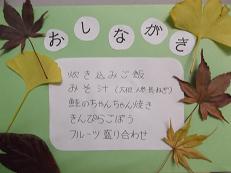 おしながき
炊き込みご飯
みそ汁(大根、人参、長ねぎ)
鮭のちゃんちゃん焼き
きんぴらごぼう
フルーツ盛り合わせ